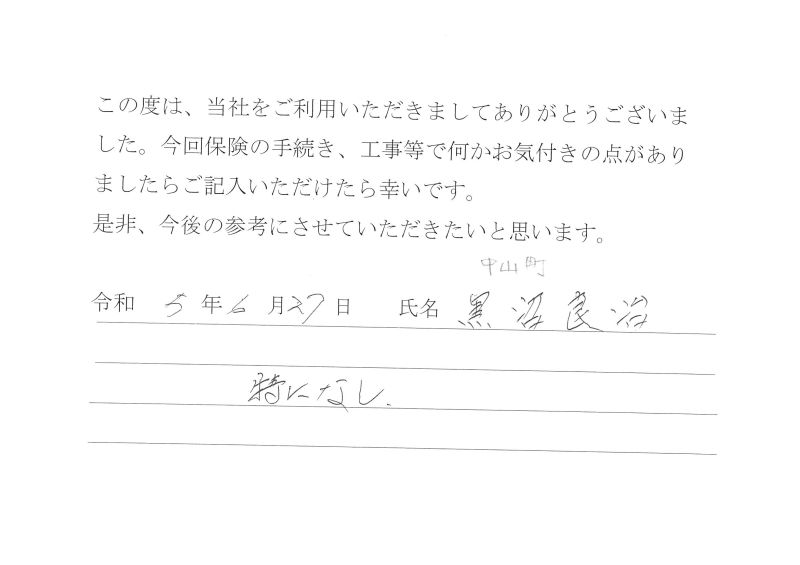 この度は、当社をご利用いただきましてありがとうございま
した。今回保険の手続き、工事等で何かお気付きの点があり
ましたらご記入いただけたら幸いです。
是非、今後の参考にさせていただきたいと思います。
中山町
令和 5 年 6 月 27 日 氏名 黒沼良治
特になし.